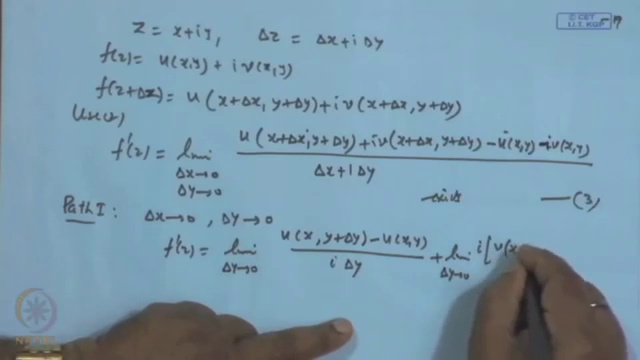 © CET
I.I.T. KGP
z = x+iy, Δz = Δx+i Δy
f(z) = u(x,y) + i v(x,y)
f(z+Δz) = u(x+Δx, y+Δy) + i v(x+Δx, y+Δy)
f'(z) = lim Δx→0 Δy→0 u(x+Δx, y+Δy) + i v(x+Δx, y+Δy) - u(x,y) - i v(x,y) / Δx+i Δy
—(3)
Path I: Δx→0, Δy→0
f'(z) = lim Δy→0 u(x, y+Δy) - u(x,y) / i Δy + lim Δy→0 i [v(x
NPTEL